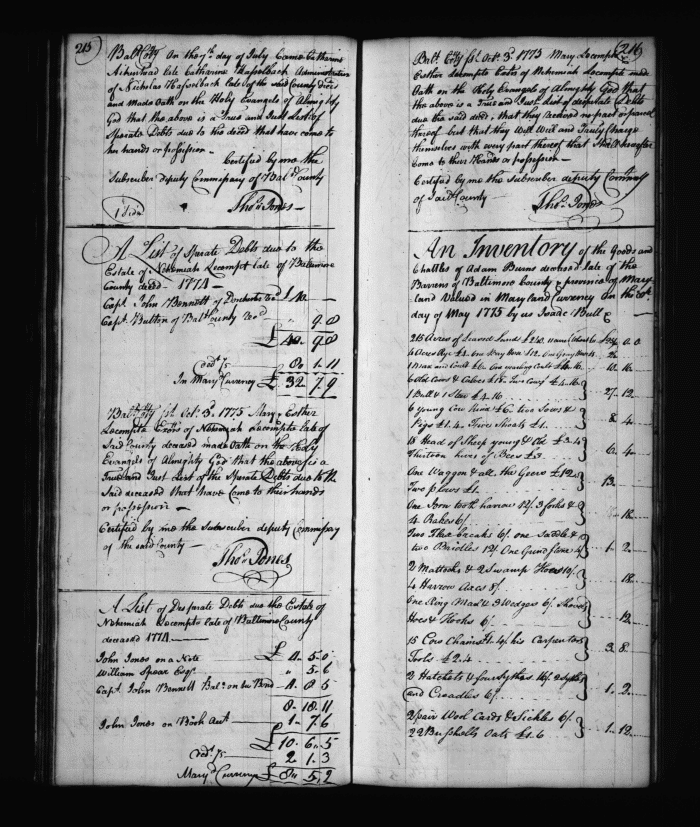 215
Balt. Coty On the 7th day of July Came Catharine
Aikenhead late Catharine Hasselbach Administratrix
of Nicholas Hasselback late of the said County Decd
and Made Oath on the Holy Evangels of Almighty
God that the above is a True and Just List of
Sperate Debts due to the decd that have come to
her hands or possession —
Certified by me the
Subscriber deputy Commissary of Balt County
Thos. Jones —
A List of Sperate Debts due to the
Estate of Nehemiah Lecompt late of Baltimore
County decd — 1774 —
Capt. John Bennett of Dorchester Co
Capt. Button of Balt County 9. 8
£ 40. 9 8
dedt 1/5 8. 1. 11
In Mary Currency £ 32 7 9
Balt Coty Sst. Oct. 3d. 1775 Mary & Esther
Lecompte Exors of Nehemiah Lecompte late of
Said County deceased made Oath on the Holy
Evangels of Almighty God that the above is a
True and Just List of the Sperate Debts due to the
Said deceased that have Come to their hands
or possession —
Certified by me the Subscriber deputy Commissary
of the said County —
Thos. Jones
A List of Desperate Debts due the Estate of
Nehemiah Lecompte late of Baltimore County
deceased 1774
John Jones on a Note £ 4. 5. 0
William Spear Esqr " 5. 6
Capt. John Bennett Balr. on his Bond 4. 8 5
8. 18. 11
John Jones on Book Acct 1. 7 6
£ 10. 6. 5
dedt 1/5 2 1. 3
Mary Currency £ 8. 5. 2
216
Balt. Coty Sst. Oct. 3d. 1775 Mary Lecompte
Esther Lecompte Exors of Nehemiah Lecompte made
Oath on the Holy Evangels of Almighty God that
the above is a True and Just List of desperate Debts
due the said decd, that they received no part or parcel
thereof but that they Will Well and Truly charge
themselves with every part thereof that Shall hereafter
Come to their Hands or possession —
Certified by me the Subscriber deputy Commissy
of Said County —
Thos. Jones
An Inventory of the Goods and
Chattles of Adam Burns deceased late of the
Barrens of Baltimore County & province of Mary-
land Valued in Maryland Currency On the
day of May 1775 by us Isaac Bull &
215 Acres of Leased Land £210.
1 Bull & 1 Steer £4.16 27. 12
6 young Cow kind £6. two Sows &
Pigs £1.4. Five Shoats £1. 8 4
18 Head of Sheep young & Old £3.4
Thirteen hives of Bees £3 6. 4
One Waggon & all the Geers £12
Two plows £1. 13
One Iron tooth harrow 12/ 3 forks &
4 Rakes 6/ 18
Two Flax breaks 6/. one Saddle &
two Bridles 12/ One Grindstone 4/ 1. 2
2 Mattocks & 2 Swamp Hoes 10/
4 Harrow Axes 8/ 18
One Ring Maul & 3 Wedges 6/. Shovel
Hoes & Hooks 6/. 12
15 Cow Chains £1.4/ his Carpenters
Tools £2.4 3. 8
2 Hatchets & four Sythes 16/. 2 Sythes
and Creadles 6/ 1. 2
2 pair Wool Cards & Sickles 6/.
22 Bushells Oats £1.6 1. 12